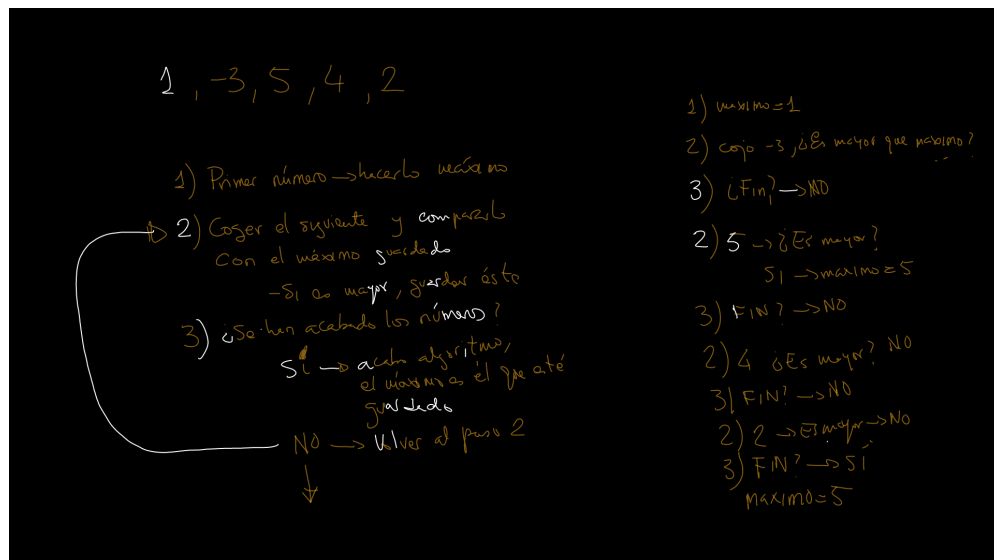 1, -3, 5, 4, 2
1) Primer número → hacerlo máximo
2) Coger el siguiente y compararlo
con el máximo guardado
- Si es mayor, guardar éste
3) ¿Se han acabado los números?
Sí → acaba algoritmo,
el máximo es el que esté
guardado
NO → Volver al paso 2
1) maximo=1
2) cojo -3, ¿Es mayor que maximo?
3) ¿Fin? → NO
2) 5 → ¿Es mayor?
SI → maximo=5
3) FIN? → NO
2) 4 ¿Es mayor? NO
3) FIN? → NO
2) 2 → Es mayor → NO
3) FIN? → SÍ
maximo=5